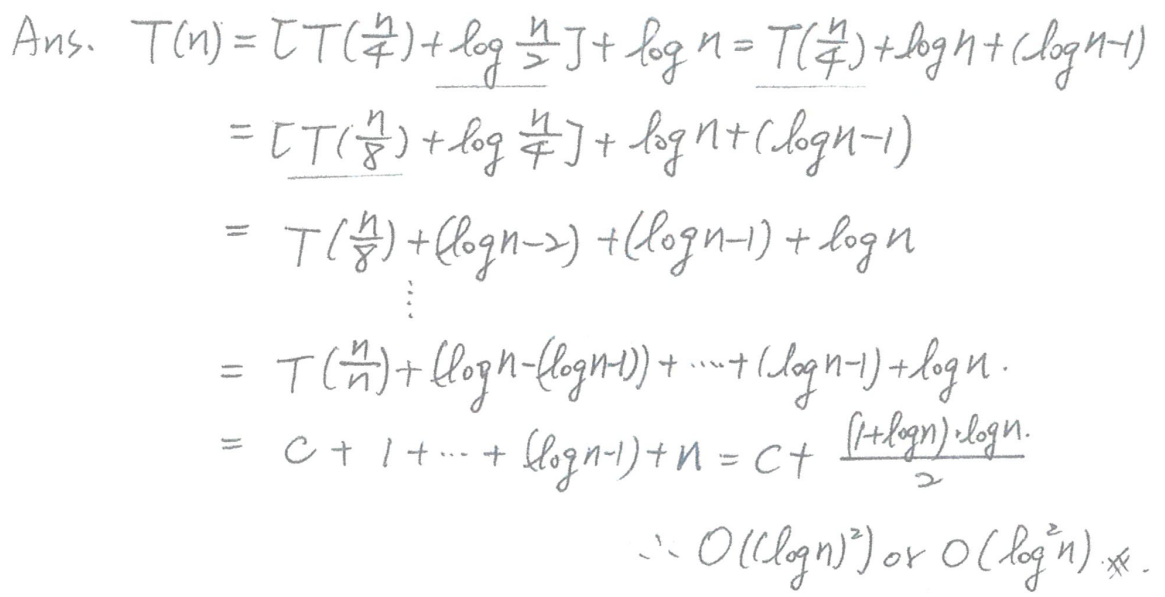 Ans. T(n) = [T(n/4) + log n/2] + log n = T(n/4) + log n + (log n-1)
= [T(n/8) + log n/4] + log n + (log n-1)
= T(n/8) + (log n-2) + (log n-1) + log n
⋮
= T(n/n) + (log n-(log n-1)) + ..... + (log n-1) + log n.
= C + 1 + ... + (log n-1) + n = C + (1+log n)·log n./2
∴ O((log n)²) or O(log²n) ※.